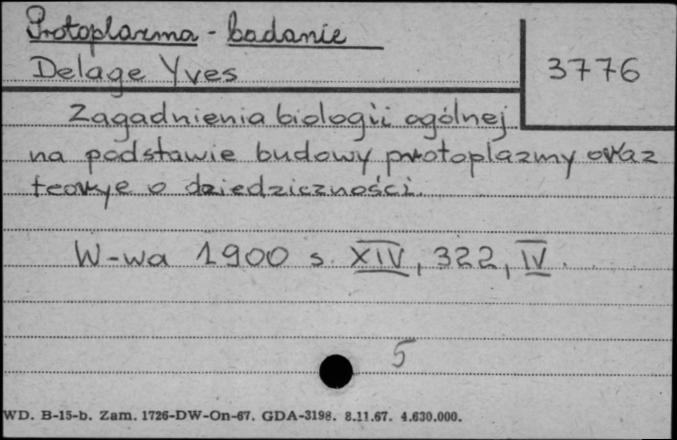 Protoplazma - badanie
Delage Yves
3776
Zagadnienia biologii ogólnej
na podstawie budowy protoplazmy oraz
teorye o dziedziczności.
W-wa 1900 s. XIV, 322, IV.
5
WD. B-15-b. Zam. 1726-DW-On-67. GDA-3198. 8.11.67. 4.630.000.